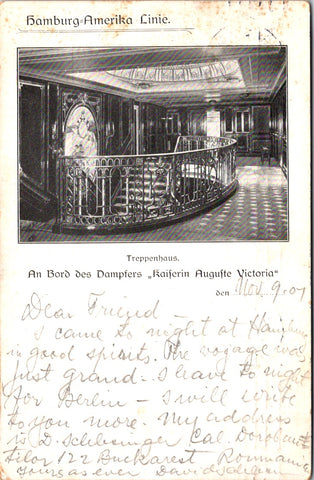 Hamburg-Amerika Linie.
Treppenhaus.
An Bord des Dampfers „Kaiserin Auguste Victoria"
den Nov. 9.07
Dear Friend –
I came to night at Hamburg
in good spirits. The voyage was
just grand. I leave to night
for Berlin – I will write
to you more. My address
is D. Schlesinger Cal. Dorobanti
lilor 122 Bucharest Roumania
Yours as ever David